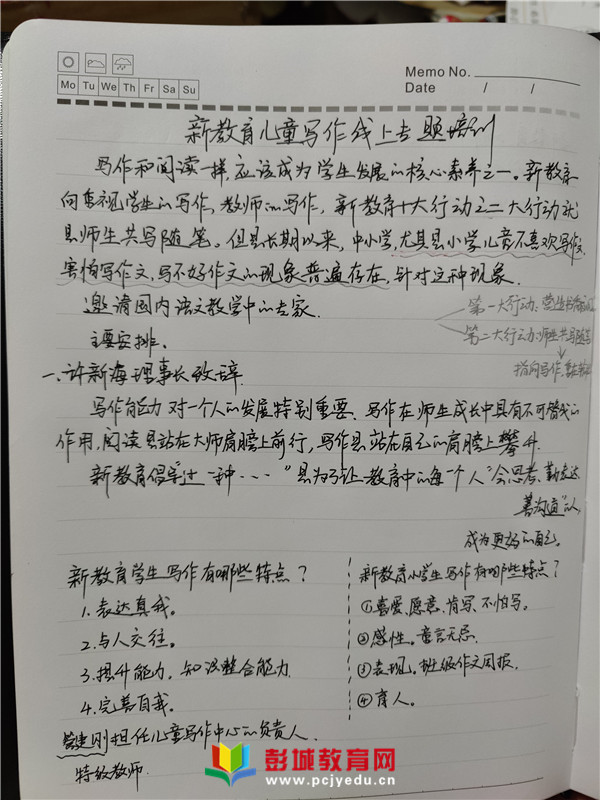 Memo No.
Mo Tu We Th Fr Sa Su
Date / /
新教育儿童写作线上专题培训
写作和阅读一样,应该成为学生发展的核心素养之一。新教育
向来重视学生的写作,教师的写作,新教育十大行动之二大行动就
是师生共写随笔。但是长期以来,中小学,尤其是小学儿童不喜欢写作文,
害怕写作文,写不好作文的现象普遍存在,针对这种现象.
邀请国内语文教学中的专家.
第一大行动:营造书香
第二大行动:师生共写随笔
主要安排.
指向写作,
一、许新海理事长致辞.
写作能力对一个人的发展特别重要.写作在师生成长中具有不可替代的
作用,阅读是站在大师肩膀上前行,写作是站在自己的肩膀上攀升.
新教育倡导过一种···"是为了让教育中的每一个人"会思考、勤表达、
善沟通"的,
成为更好的自己。
新教育学生写作有哪些特点?
1.表达真我。
2.与人交往。
3.提升能力,知识整合能力
4.完善自我。
新教育小学生写作有哪些特点?
①喜爱、愿意、肯写、不怕写。
②感性。童言无忌.
③表现。班级作文周报.
④育人。
管建刚担任儿童写作中心的负责人
特级教师.
彭城教育网
www.pcjyedu.cn